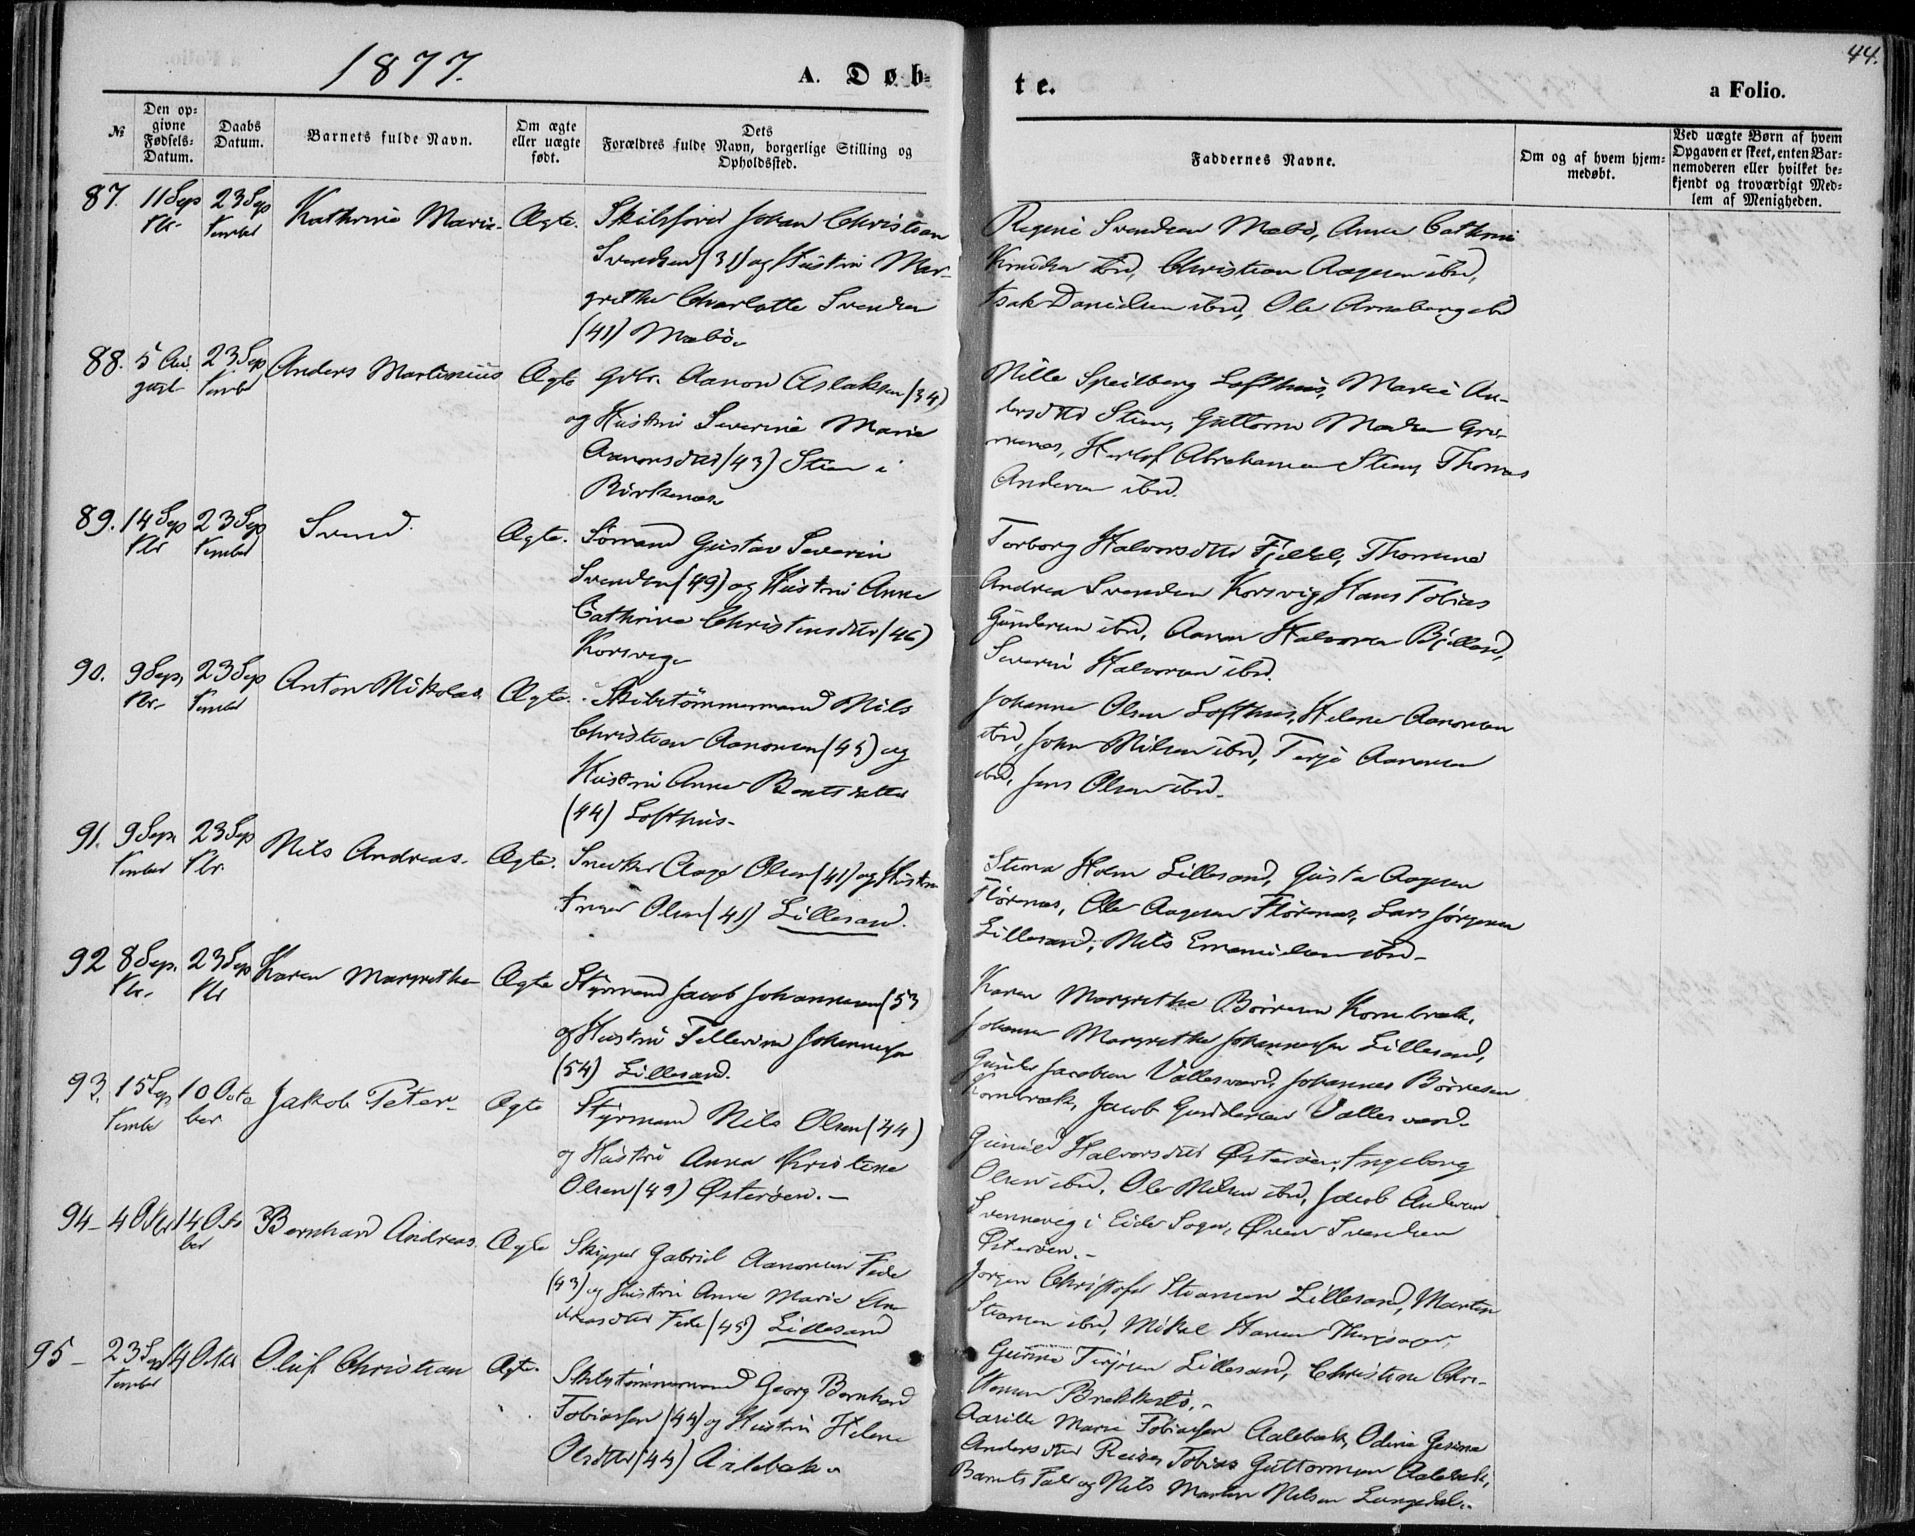 1877.
A. Døb-
te.
a Folio.
44.
№
Den op-
givne
Fødsels-
Datum.
Daabs
Datum.
Barnets fulde Navn.
Om ægte
eller uægte
født.
Dets
Forældres fulde Navn, borgerlige Stilling og
Opholdssted.
Faddernes Navne.
Om og af hvem hjem-
medøbt.
Ved uægte Børn af hvem
Opgaven er skeet, enten Bar-
nemoderen eller hvilket be-
kjendt og troværdigt Med-
lem af Menigheden.
87. 11 Sep 23 Sep Kathrine Marie. Ægte. Skibsfører Johan Christian
tember
Svendsen (31) og Hustru Mar-
grethe Charlotte Svendsen
(41) Mæbø.
Regine Svendsen Mæbø, Anne Cathrine
Knudsen ibd, Christian Aagesen ibd,
Isak Danielsen ibd, Ole
88. 5 Au 23 Sep Anders Martinius Ægte Gdbr. Aanon Aslaksen (34)
gust tember
og Hustru Severine Marie
Aanonsdtter (43) Steen i
Birkenæs
Nille Speilberg Lofthus, Marie An-
dersdtter Steen, Guttorm Madsen
Herlof Abrahamsen Steen, Thomas
Andersen ibd.
89. 14 Sep 23 Sep Svend. Ægte. Sømand Gustav Severin
tember
Svendsen (49) og Hustru Anne
Cathrine Christensdtter (46)
Korsvig
Torborg Halvorsdtter Fjeldal, Thomine
Andrea Svendsen Korsvig, Hans Tobias
Gundersen ibd, Aanon Halvorsen Bjelland,
Severin Halvorsen ibd.
90. 9 Sep 23 Sep Anton Nikolai. Ægte. Skibstømmermand Nils
tember
Christian Aanonsen (45) og
Hustru Anne Bentsdatter
(44) Lofthus.
Johanne Olsen Lofthus, Helene Aanonsen
ibd, John Nilsen ibd, Terje Aanonsen
ibd, Jens Olsen ibd.
91. 9 Sep. 23 Sep Nils Andreas. Ægte. Snedker Aage Olsen (41) og Hustru
tember
Inger Olsen (41) Lillesand.
Stina Holm Lillesand, Gusta Aagesen
Flørenæs, Ole Aagesen Flørenæs, Lars Jørgensen
Lillesand, Nils Emanuelsen ibd.
92 8 Sep. 23 Sep Karen Margrethe Ægte Styrmand Jacob Johannesen (53
og Hustru Tellevine Johannesen
(54) Lillesand.
Karen Margrethe Børresen Kornbræk,
Johanne Margrethe Johannesen Lillesand,
Gunder Jacobsen Vallesværd, Johannes Børresen
Kornbræk, Jacob Gundersen Vallesværd.
93. 15 Sep 10 Octo Jakob Peter. Ægte Styrmand Nils Olsen (44)
tember ber
og Hustru Anna Kristine
Olsen (49) Østerøen.
Gunild Halvorsdtter Østerøen, Ingeborg
Olsen ibd, Ole Nilsen ibd, Jacob Andersen
Svennevig i Eide Sogn, Øven Svendsen
Østerøen.
94 4 Okt 14 Octo Bernhard Andreas. Ægte Skipper Gabriel Aanonsen Fede
ber
(43) og Hustru Anne Marie An-
dreasdtter Fede (45) Lillesand
Jørgen Christofer Stoamsen Lillesand, Martin
ibd, Mikal Hansen
Gurine Terjesen Lillesand, Christine Chri-
stensen Brekkestø.
95 23 Sep 14 Octbr Oluf Christian Ægte. Skibstømmermand Georg Bernhard
tember
Tobiassen (44) og Hustru Helene
Olsdtter (44) Aalebæk
Aasille Marie Tobiassen Aalebæk, Odine Gesine
Andersdtter Tobias Guttormsen Aalebæk,
Barnets Fader og Nils Martin Nilsen Langedal.